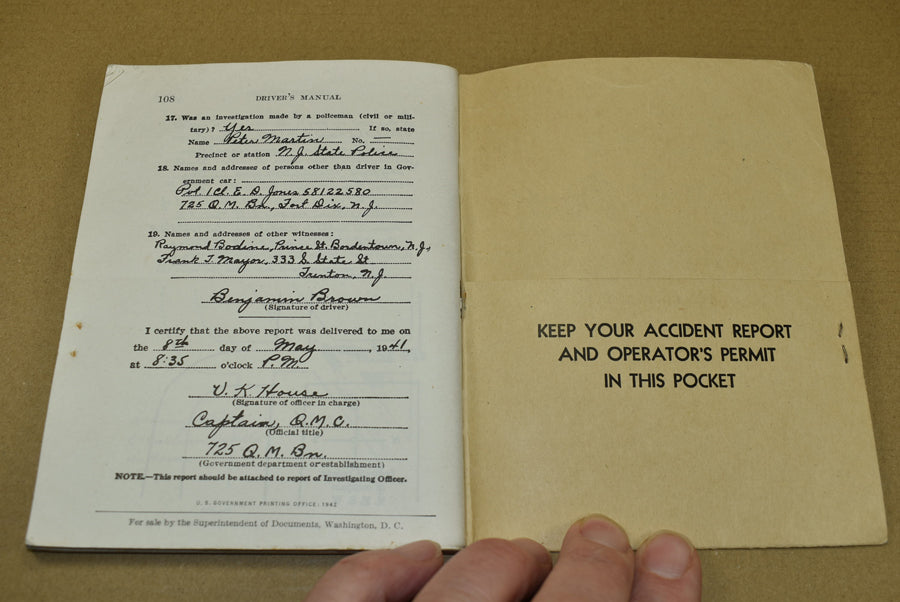 108 DRIVER'S MANUAL
17. Was an investigation made by a policeman (civil or mili-
tary)? Yes If so, state
Name Peter Martin No. —
Precinct or station N.J. State Police
18. Names and addresses of persons other than driver in Gov-
ernment car:
Pvt. 1Cl. E. D. Jones 58122580
725 Q.M. Bn., Fort Dix, N.J.
19. Names and addresses of other witnesses:
Raymond Bodine, Prince St. Bordentown, N.J.,
Frank T. Mayor, 333 S. State St
Trenton, N.J.
Benjamin Brown
(Signature of driver)
I certify that the above report was delivered to me on
the 8th day of May, 1941,
at 8:35 o'clock P.M.
V. K House
(Signature of officer in charge)
Captain, Q.M.C.
(Official title)
725 Q.M. Bn.
(Government department or establishment)
NOTE.—This report should be attached to report of Investigating Officer.
U. S. GOVERNMENT PRINTING OFFICE: 1942
For sale by the Superintendent of Documents, Washington, D. C.
KEEP YOUR ACCIDENT REPORT
AND OPERATOR'S PERMIT
IN THIS POCKET